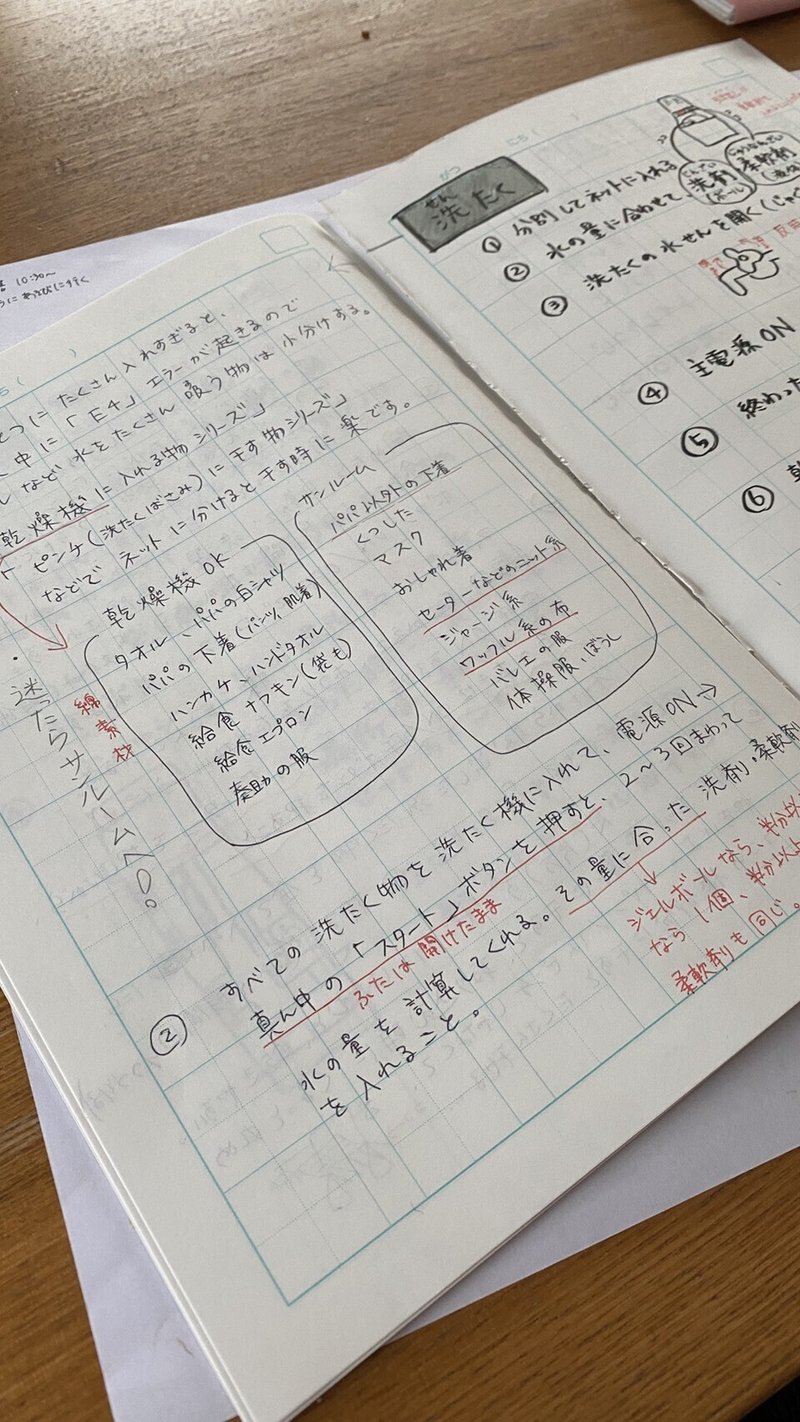 10:30〜
にあそびに行く
5( )
つに たくさん 入れすぎると、
中に「E4」エラーが起きるので
など 水をたくさん 吸う物は 小分けする。
乾燥機に入れる物シリーズ」
「ピンチ(洗たくばさみ)に干す物シリーズ」
などで ネットに分けると干す時に楽です。
乾燥機OK
タオル、パパの白シャツ
パパの下着(パンツ、肌着)
ハンカチ、ハンドタオル
給食ナフキン(袋も)
給食エプロン
奏助の服
綿素材
サンルーム
パパ以外の下着
くつした
マスク
おしゃれ着
セーターなどのニット系
ジャージ系
ワッフル系の布
バレエの服
体操服、ぼうし
・迷ったらサンルームへ!
② すべての 洗たく物を 洗たく機に入れて、電源ON→
真ん中の「スタート」ボタンを押すと、2〜3回まわって
ふたは開けたまま
水の量を計算してくれる。その量に合った 洗剤・柔軟剤
を入れること。
ジェルボールなら、半分以
なら1個、半分以上
柔軟剤も同じ。
がつ にち( )
せん
洗たく
① 分別してネットに入れる
② 水の量に合わせて
せんざい
洗剤
(ボール)
じゅうなんざい
柔軟剤
③ 洗たくの水せんを開く(じゃ
④ 主電源ON
⑤ 終わった
⑥ 乾